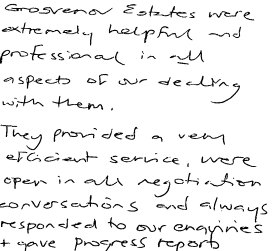 Grosvenor Estates were
extremely helpful and
professional in all
aspects of our dealing
with them.
They provided a very
efficient service, were
open in all negotiation
conversations and always
responded to our enquiries
+ gave progress reports